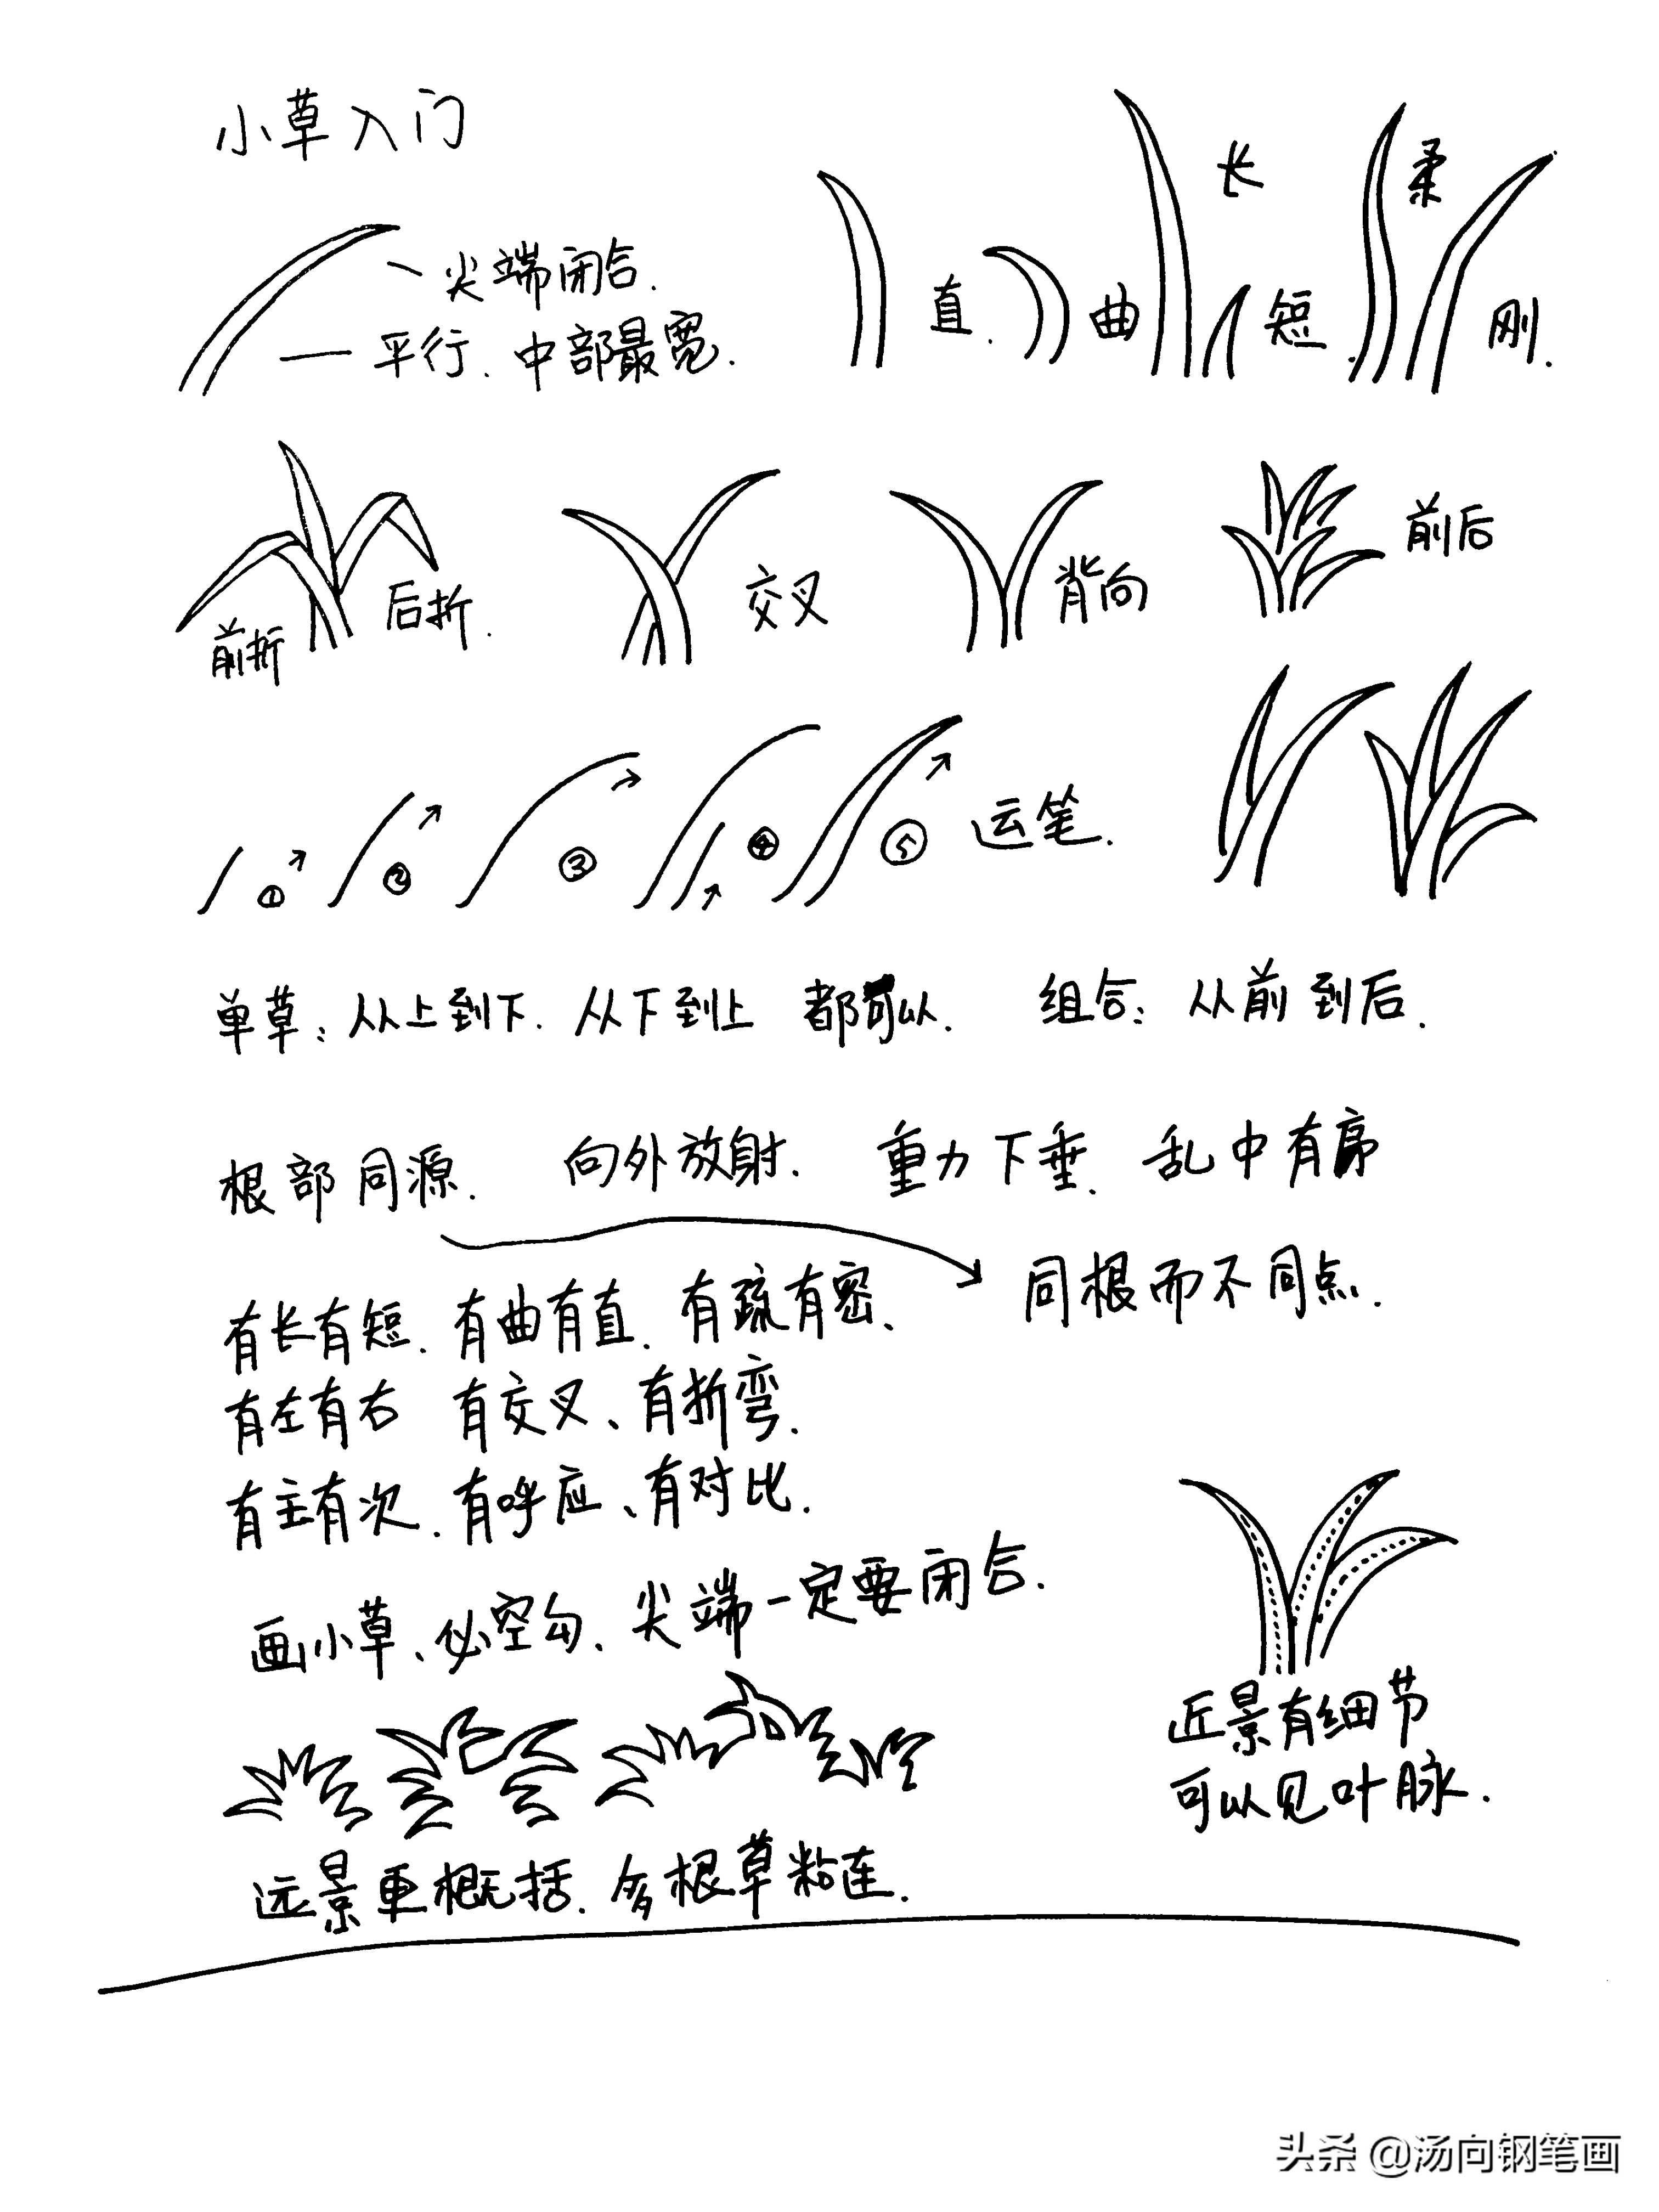 小草入门
尖端闭合.
平行.中部最宽.
直.
曲
长
短.
柔
刚.
前折
后折.
交叉
背向
前后
① ② ③ ④ ⑤ 运笔.
单草:从上到下.从下到上 都可以. 组合:从前到后.
根部同源. 向外放射. 重力下垂. 乱中有序
同根而不同点.
有长有短.有曲有直.有疏有密、
有左有右 有交叉、有折弯.
有主有次.有呼应、有对比.
画小草、必空勾.尖端一定要闭合.
近景有细节
可以见叶脉.
远景更概括.多根草粘连.
头条 @汤向钢笔画